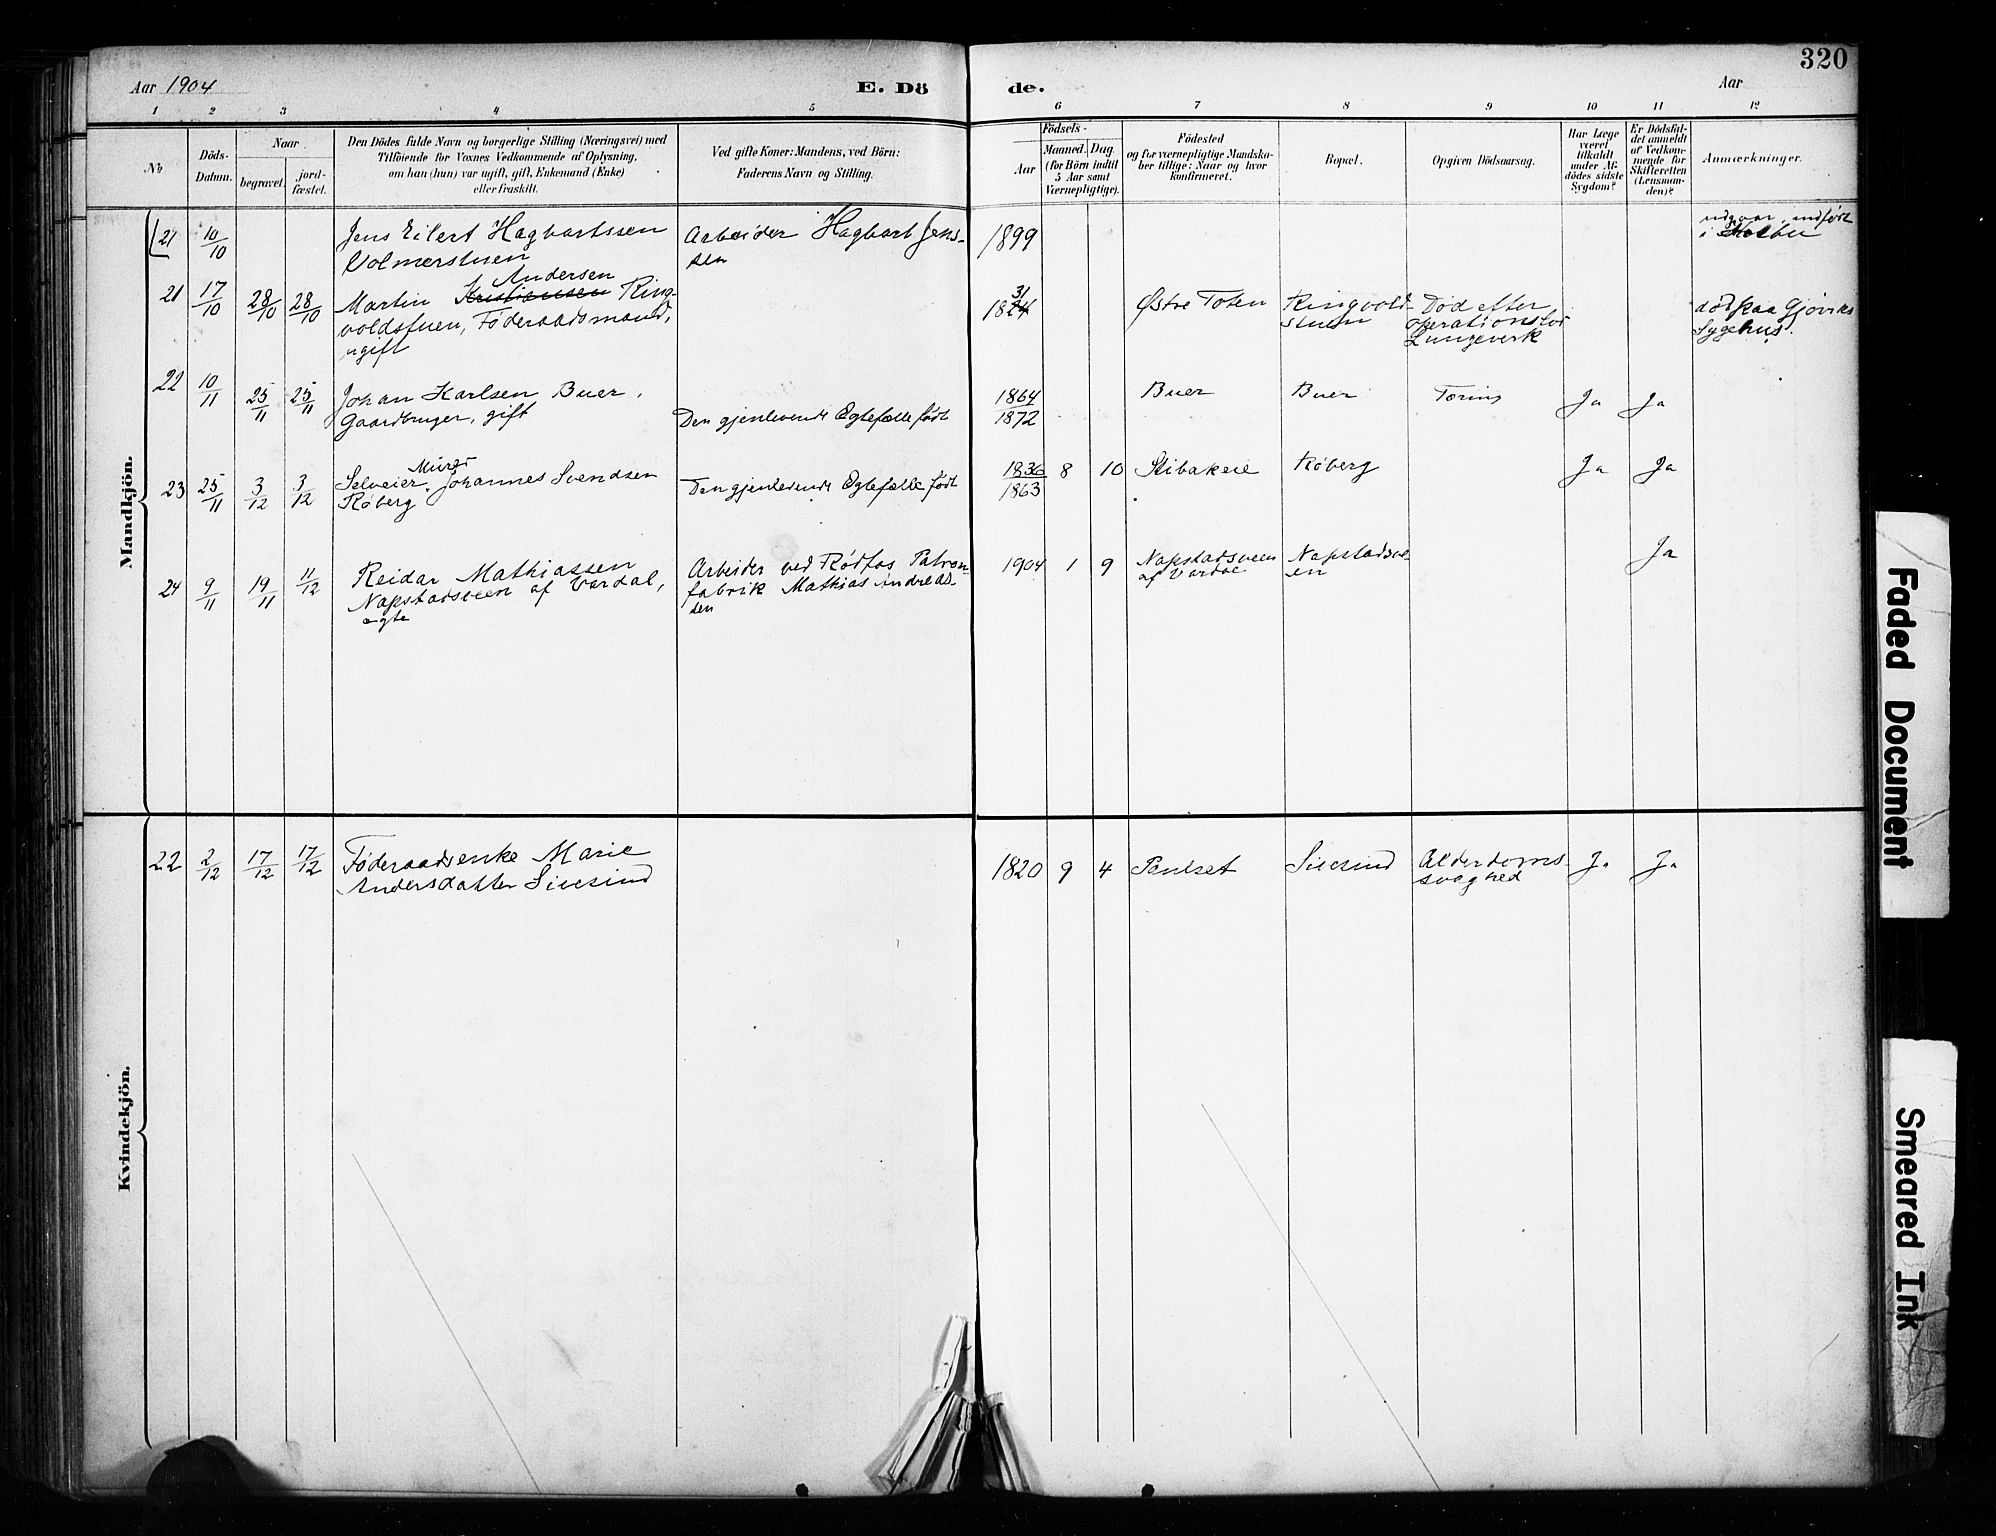 320
Aar 1904
E. Dö
de.
Aar
1 2 3 4 5 6 7 8 9 10 11 12
No
Döds-
Datum.
Naar
begravet.
jord-
fæstet.
Den Dödes fulde Navn og borgerlige Stilling (Næringsvei) med
Tilföiende for Voxnes Vedkommende af Oplysning,
om han (hun) var ugift, gift, Enkemand (Enke)
eller fraskilt.
Ved gifte Koner: Mandens, ved Börn:
Faderens Navn og Stilling.
Födsels-
Aar
Maaned. Dag.
(for Börn indtil
5 Aar samt
Værnepligtige).
Födested
og for værnepligtige Mandska-
ber tillige: Naar og hvor
konfirmeret.
Bopæl.
Opgiven Dödsaarsag.
Har Læge
været
tilkaldt
under Af-
dödes sidste
Sygdom?
Er Dödsfal-
det anmeldt
af Vedkom-
mende for
Skifteretten
(Lensman-
den)?
Anmærkninger.
Mandkjön.
21 10/10 Jens Eilert Hagbartssen
Volmerstuen
Arbeider Hagbart Jens-
sen
1899
udgaar, indført
i
21 17/10 28/10 28/10
Andersen
Martin Kristiansen Ring-
voldstuen, Føderaadsmand,
ugift
31
1824
Østre Toten
Ringvold-
stuen
Død efter
operation for
Lungeverk
død paa Gjøviks
Sygehus.
22 10/11 25/11 25/11
Johan Karlsen Buer,
Gaardbruger, gift
Den gjenlevende Egtefælle født
1864
1872
Buer
Buer
Tæring
Ja
Ja
23 25/11 3/12 3/12
Murer
Selveier Johannes Svendsen
Røberg
Den gjenlevende Egtefælle født
1836
1863
8 10
Stibakeie
Røberg
Ja
Ja
24 9/11 19/11 11/12
Reidar Mathiassen
Napstadsveen af Vardal,
ægte
Arbeider ved Rødfos Patron-
fabrik Mathias Andreas-
sen
1904 1 9
Napstadsveen
af Vardal
Napstadsve-
en
Ja
Kvindekjön.
22 2/12 17/12 17/12
Føderaadsenke Marie
Andersdatter Sivesind
1820 9 4
Paulset
Sivesind
Alderdoms-
svaghed
Ja
Ja
Faded Document
Smeared Ink